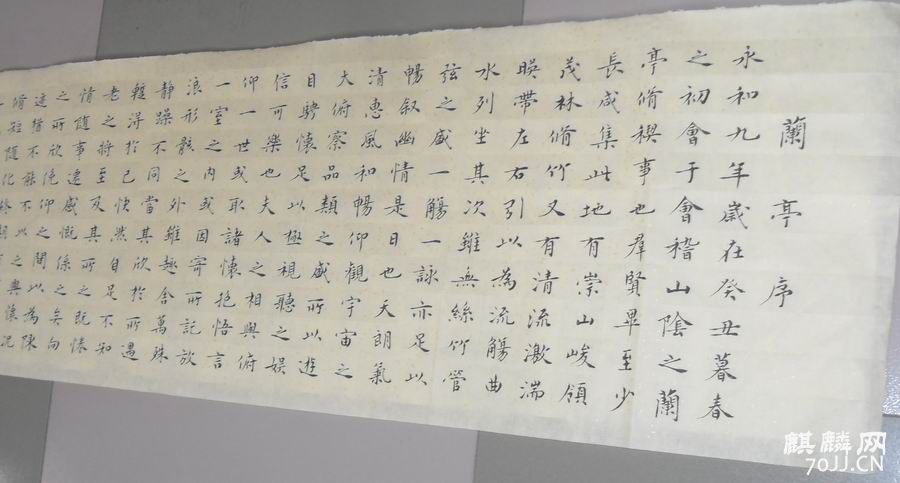 蘭亭序
永和九年歲在癸丑暮春
之初會于會稽山陰之蘭
亭脩稧事也羣賢畢至少
長咸集此地有崇山峻領
茂林脩竹又有清流激湍
暎帶左右引以為流觴曲
水列坐其次雖無絲竹管
弦之盛一觴一詠亦足以
暢叙幽情是日也天朗氣
清惠風和暢仰觀宇宙之
大俯察品類之盛所以遊
目騁懷足以極視聽之娱
信可樂也夫人之相與俯
仰一世或取諸懷抱悟言
一室之内或因寄所託放
浪形骸之外雖趣舍萬殊
静躁不同當其欣於所遇
蹔得於己快然自足不知
老之將至及其所之既惓
情随事遷感慨係之矣向
之所欣俛仰之間以為陳
麒麟网
70JJ.CN